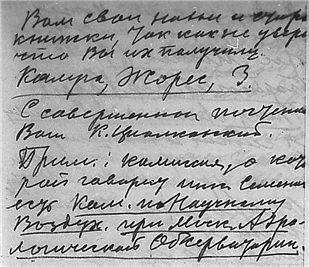 Вам свои новые и старые
книжки, так как не увере
что Вы их получили.
Калуга, Жорес, 3.
С совершенным почтени
Ваш К. Циолковский.
Прим.: комиссия, о кото
рой говорил мне Семенов
есть Ком. по Научному
Воздух. при Моск. Аэро-
логической Обсерватории.